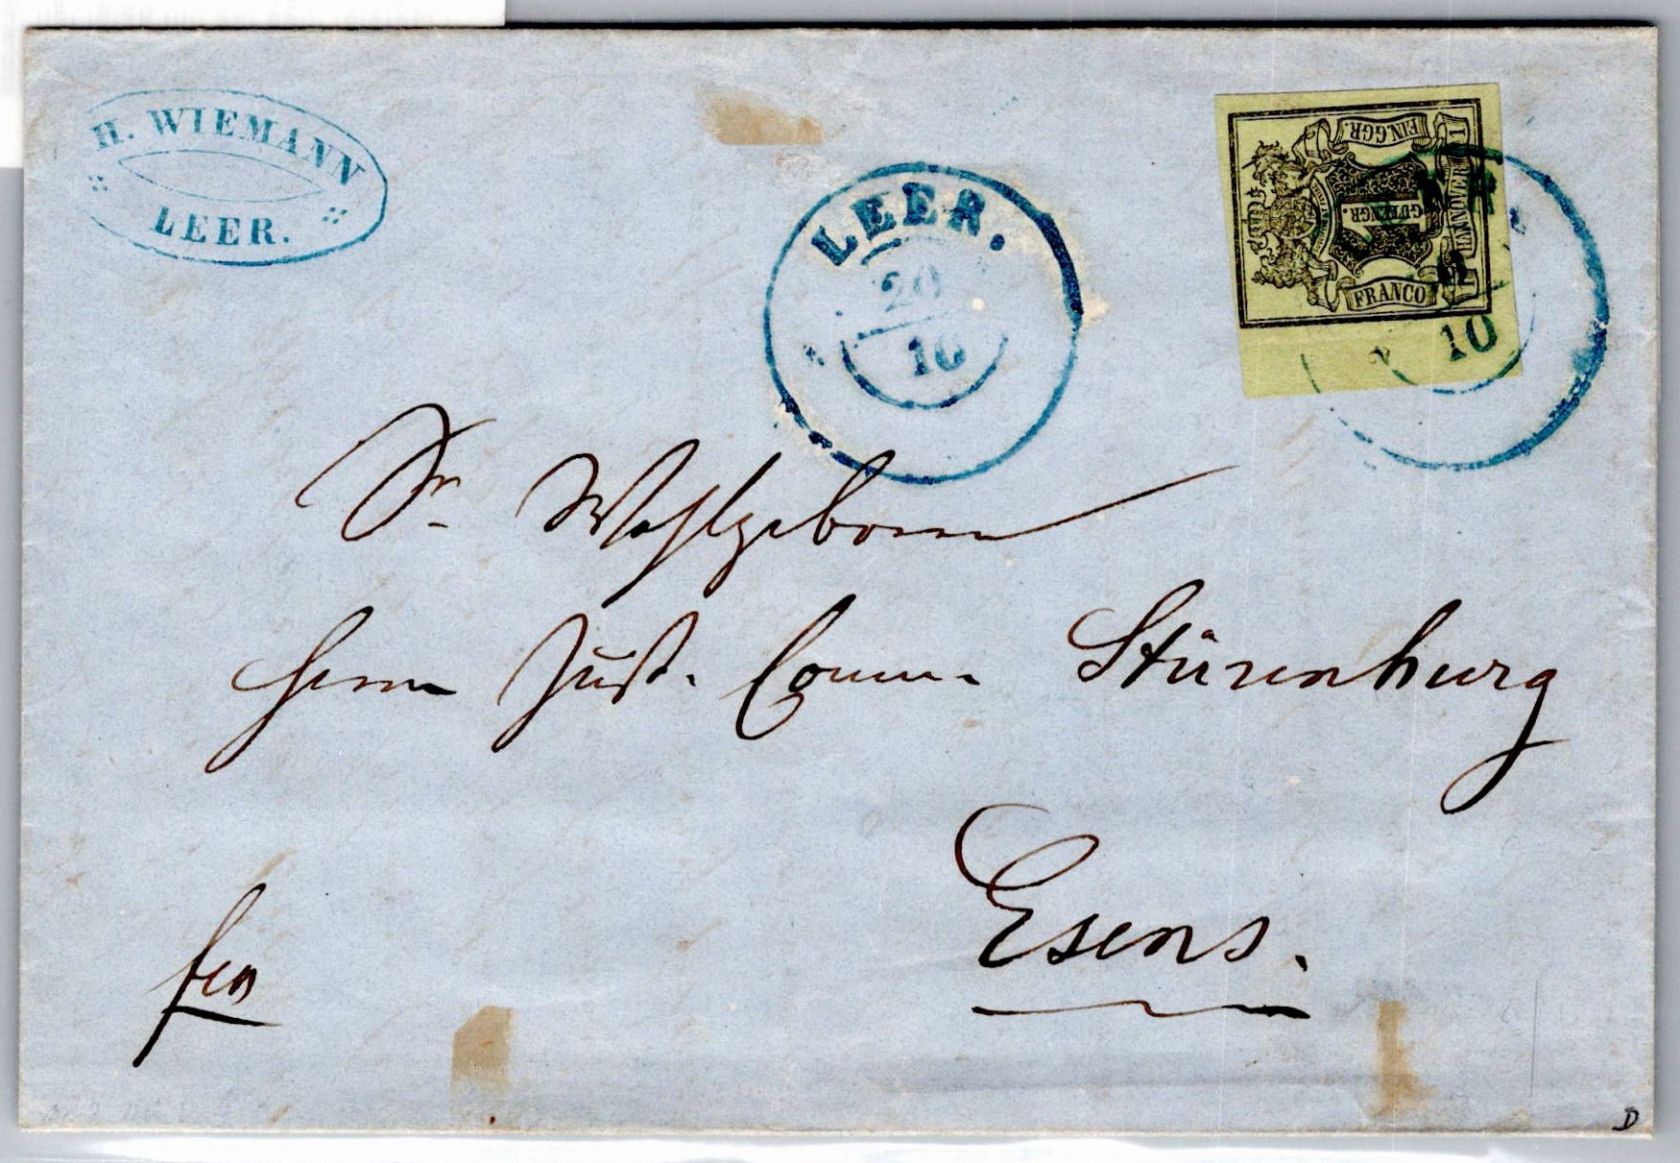 H. WIEMANN
LEER.
LEER.
20
10
EIN GGR.
1
GUTENGR.
HANNOVER
FRANCO
10
Sr Wohlgeboren
Herrn Just. Comm. Stürenburg
Esens.
fco
D